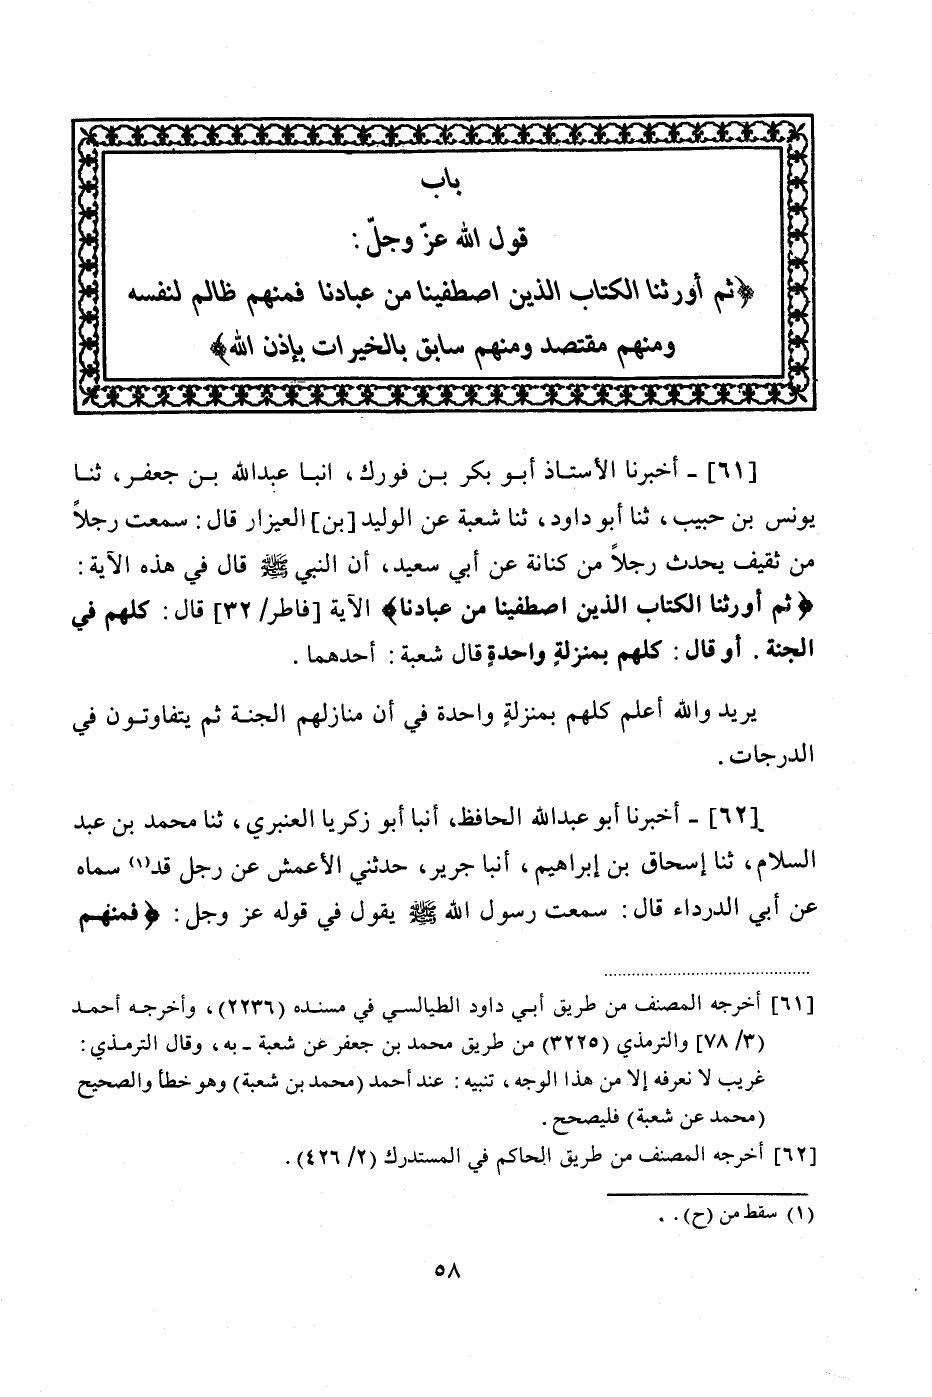 باب
قول الله عزّ وجلّ :
﴿ثم أورثنا الكتاب الذين اصطفينا من عبادنا فمنهم ظالم لنفسه
ومنهم مقتصد ومنهم سابق بالخيرات بإذن الله﴾
[٦١] ـ أخبرنا الأستاذ أبو بكر بن فورك، انبا عبدالله بن جعفر، ثنا
يونس بن حبيب، ثنا أبو داود، ثنا شعبة عن الوليد [بن] العيزار قال: سمعت رجلاً
من ثقيف يحدث رجلاً من كنانة عن أبي سعيد، أن النبي ﷺ قال في هذه الآية :
﴿ثم أورثنا الكتاب الذين اصطفينا من عبادنا﴾ الآية [فاطر/ ٣٢] قال: كلهم في
الجنة . أو قال: كلهم بمنزلةٍ واحدةٍ قال شعبة: أحدهما .
يريد والله أعلم كلهم بمنزلةٍ واحدة في أن منازلهم الجنة ثم يتفاوتون في
الدرجات .
[٦٢] ـ أخبرنا أبو عبدالله الحافظ، أنبا أبو زكريا العنبري، ثنا محمد بن عبد
السلام، ثنا إسحاق بن إبراهيم، أنبا جرير، حدثني الأعمش عن رجل قد(١) سماه
عن أبي الدرداء قال: سمعت رسول الله ﷺ يقول في قوله عز وجل: ﴿فمنهم
[٦١] أخرجه المصنف من طريق أبي داود الطيالسي في مسنده (٢٢٣٦)، وأخرجه أحمد
(٣/ ٧٨] والترمذي (٣٢٢٥) من طريق محمد بن جعفر عن شعبة ـ به، وقال الترمذي:
غريب لا نعرفه إلا من هذا الوجه، تنبيه: عند أحمد (محمد بن شعبة) وهو خطأ والصحيح
(محمد عن شعبة) فليصحح .
[٦٢] أخرجه المصنف من طريق الحاكم في المستدرك (٢/ ٤٢٦) .
(١) سقط من (ح) . .
٥٨